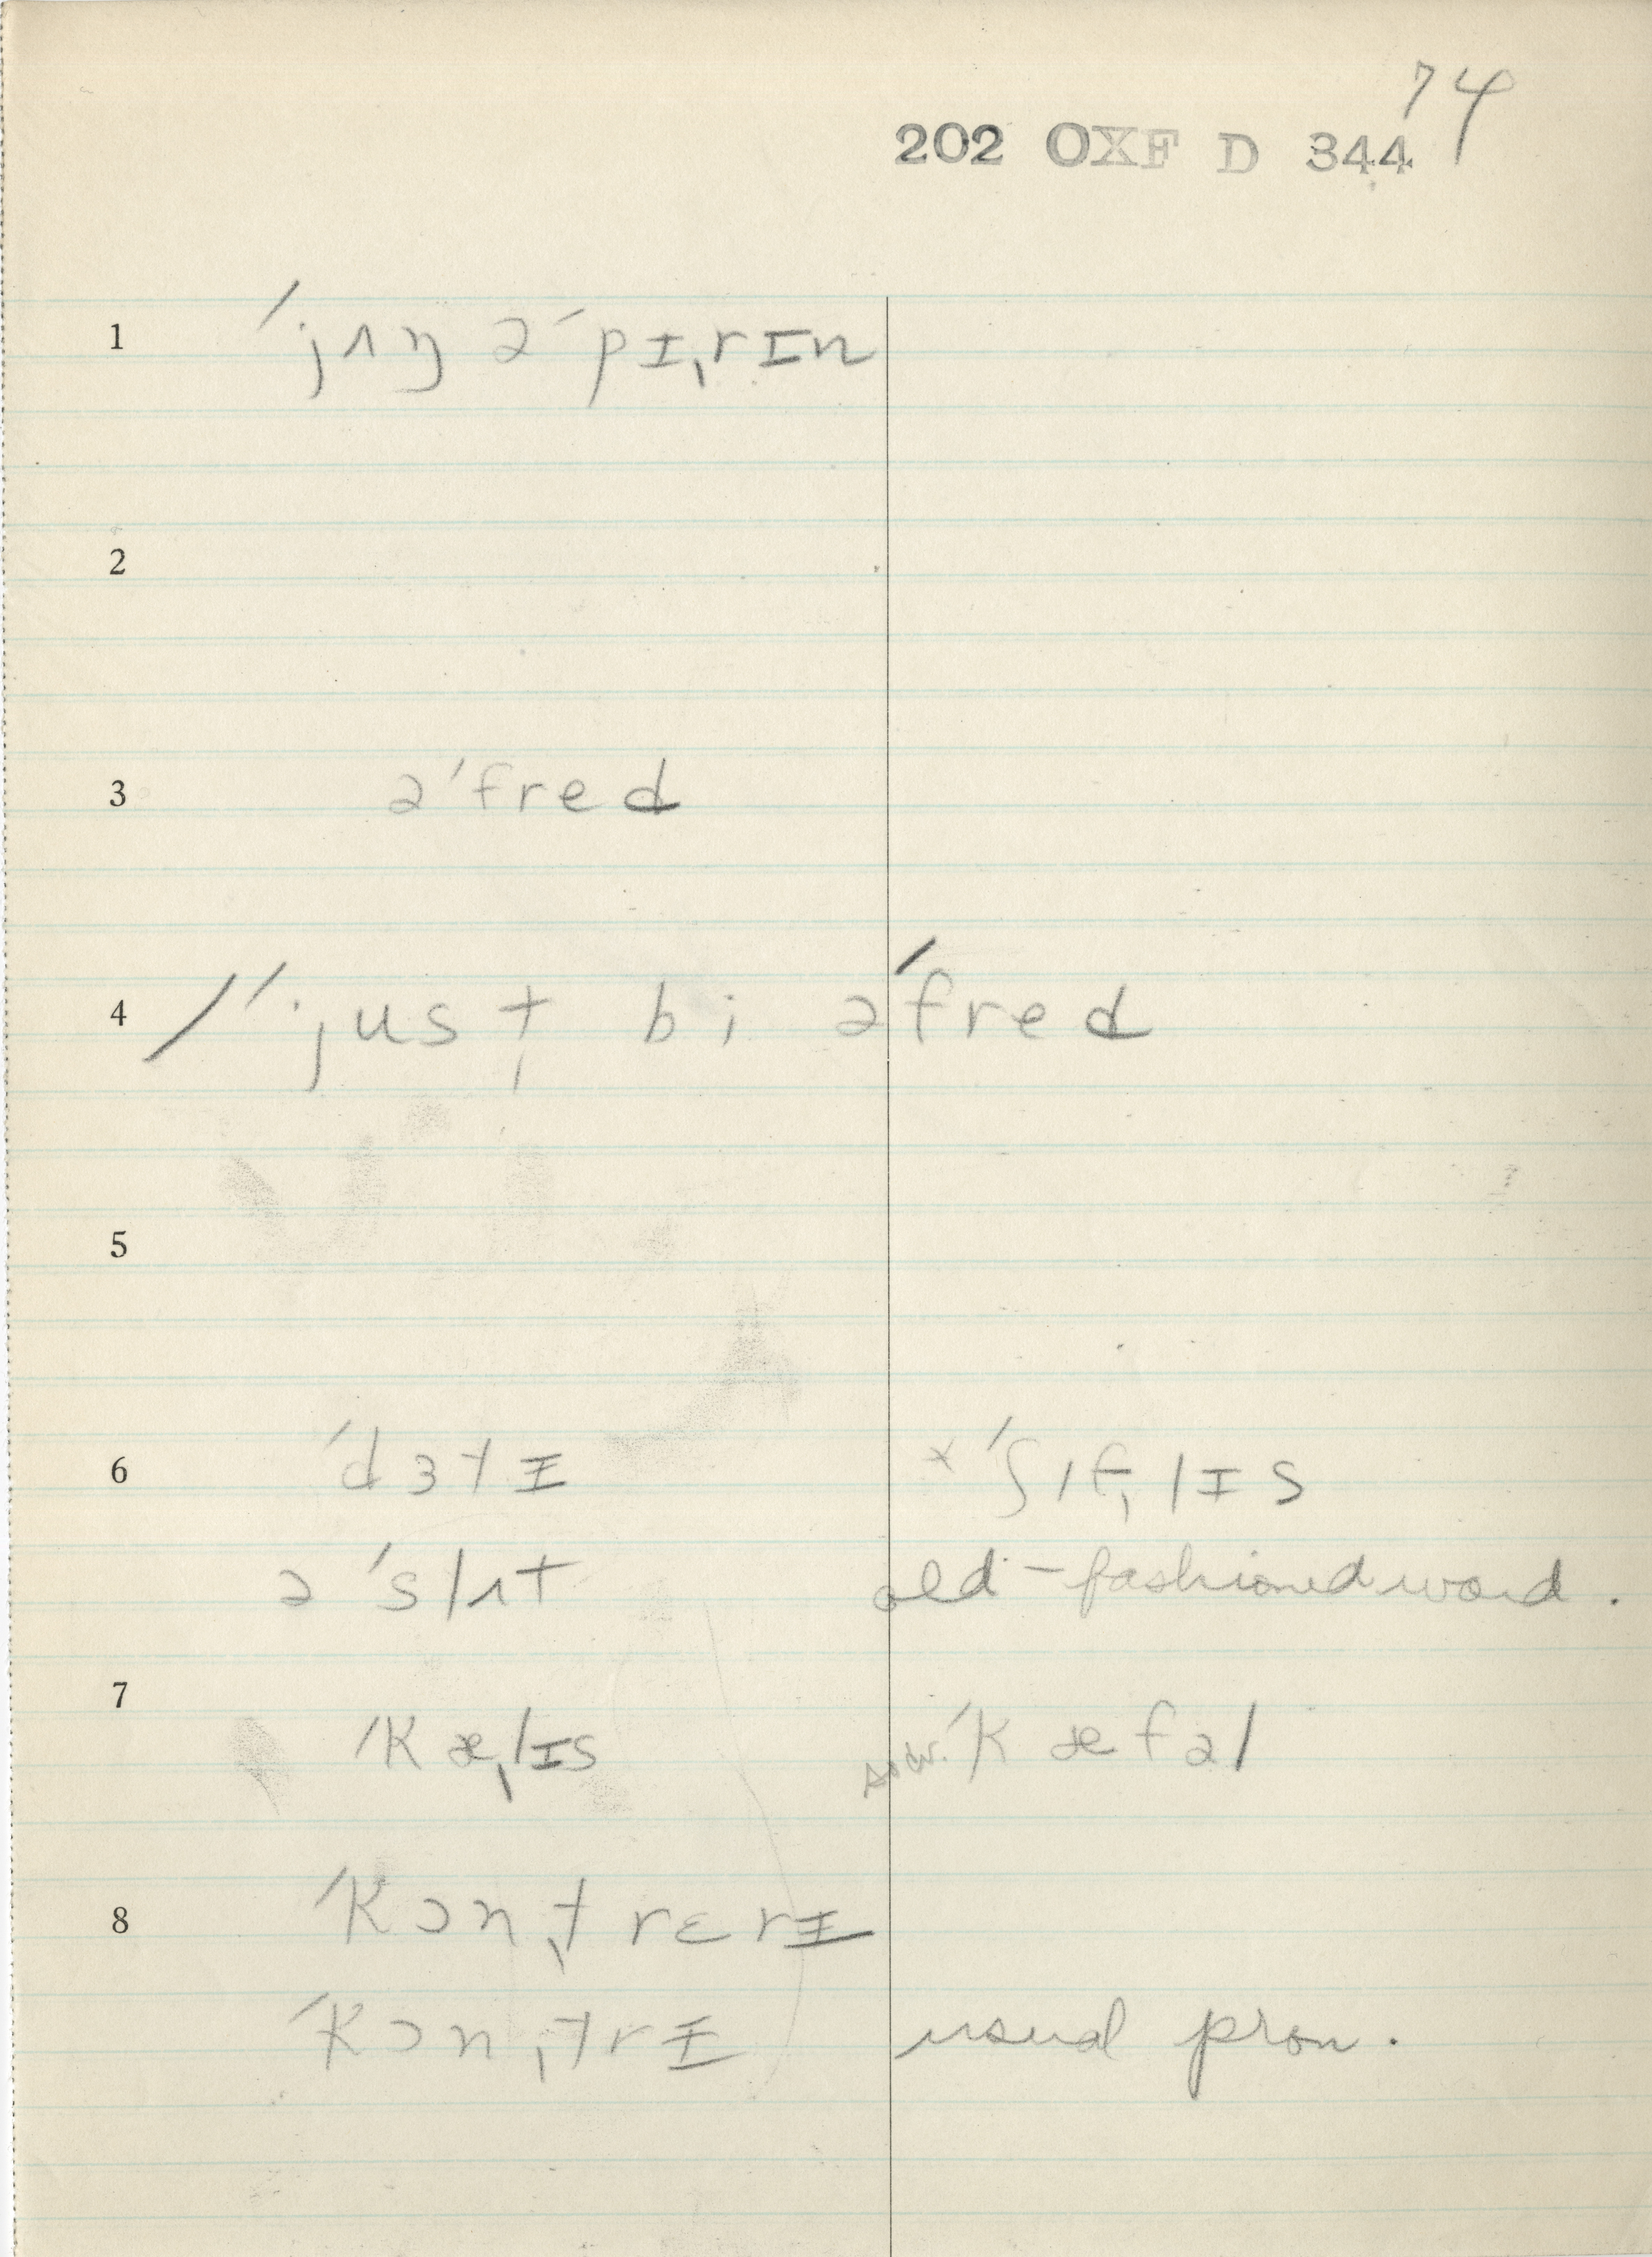 74
202 OXF D 344
1 ˈjʌŋ əˈpɪˌrɪn
2
3 əˈfred
4 /ˈjust bi əˈfred
5
6 ˈdɜtɪ xˈʃɪfˌlɪs
əˈslʌt old-fashioned word.
7 ˈkæˌlɪs ˈkæfəl
8 ˈkɔnˌtrɛrɪ
ˈkɔnˌtrɪ usual pron.